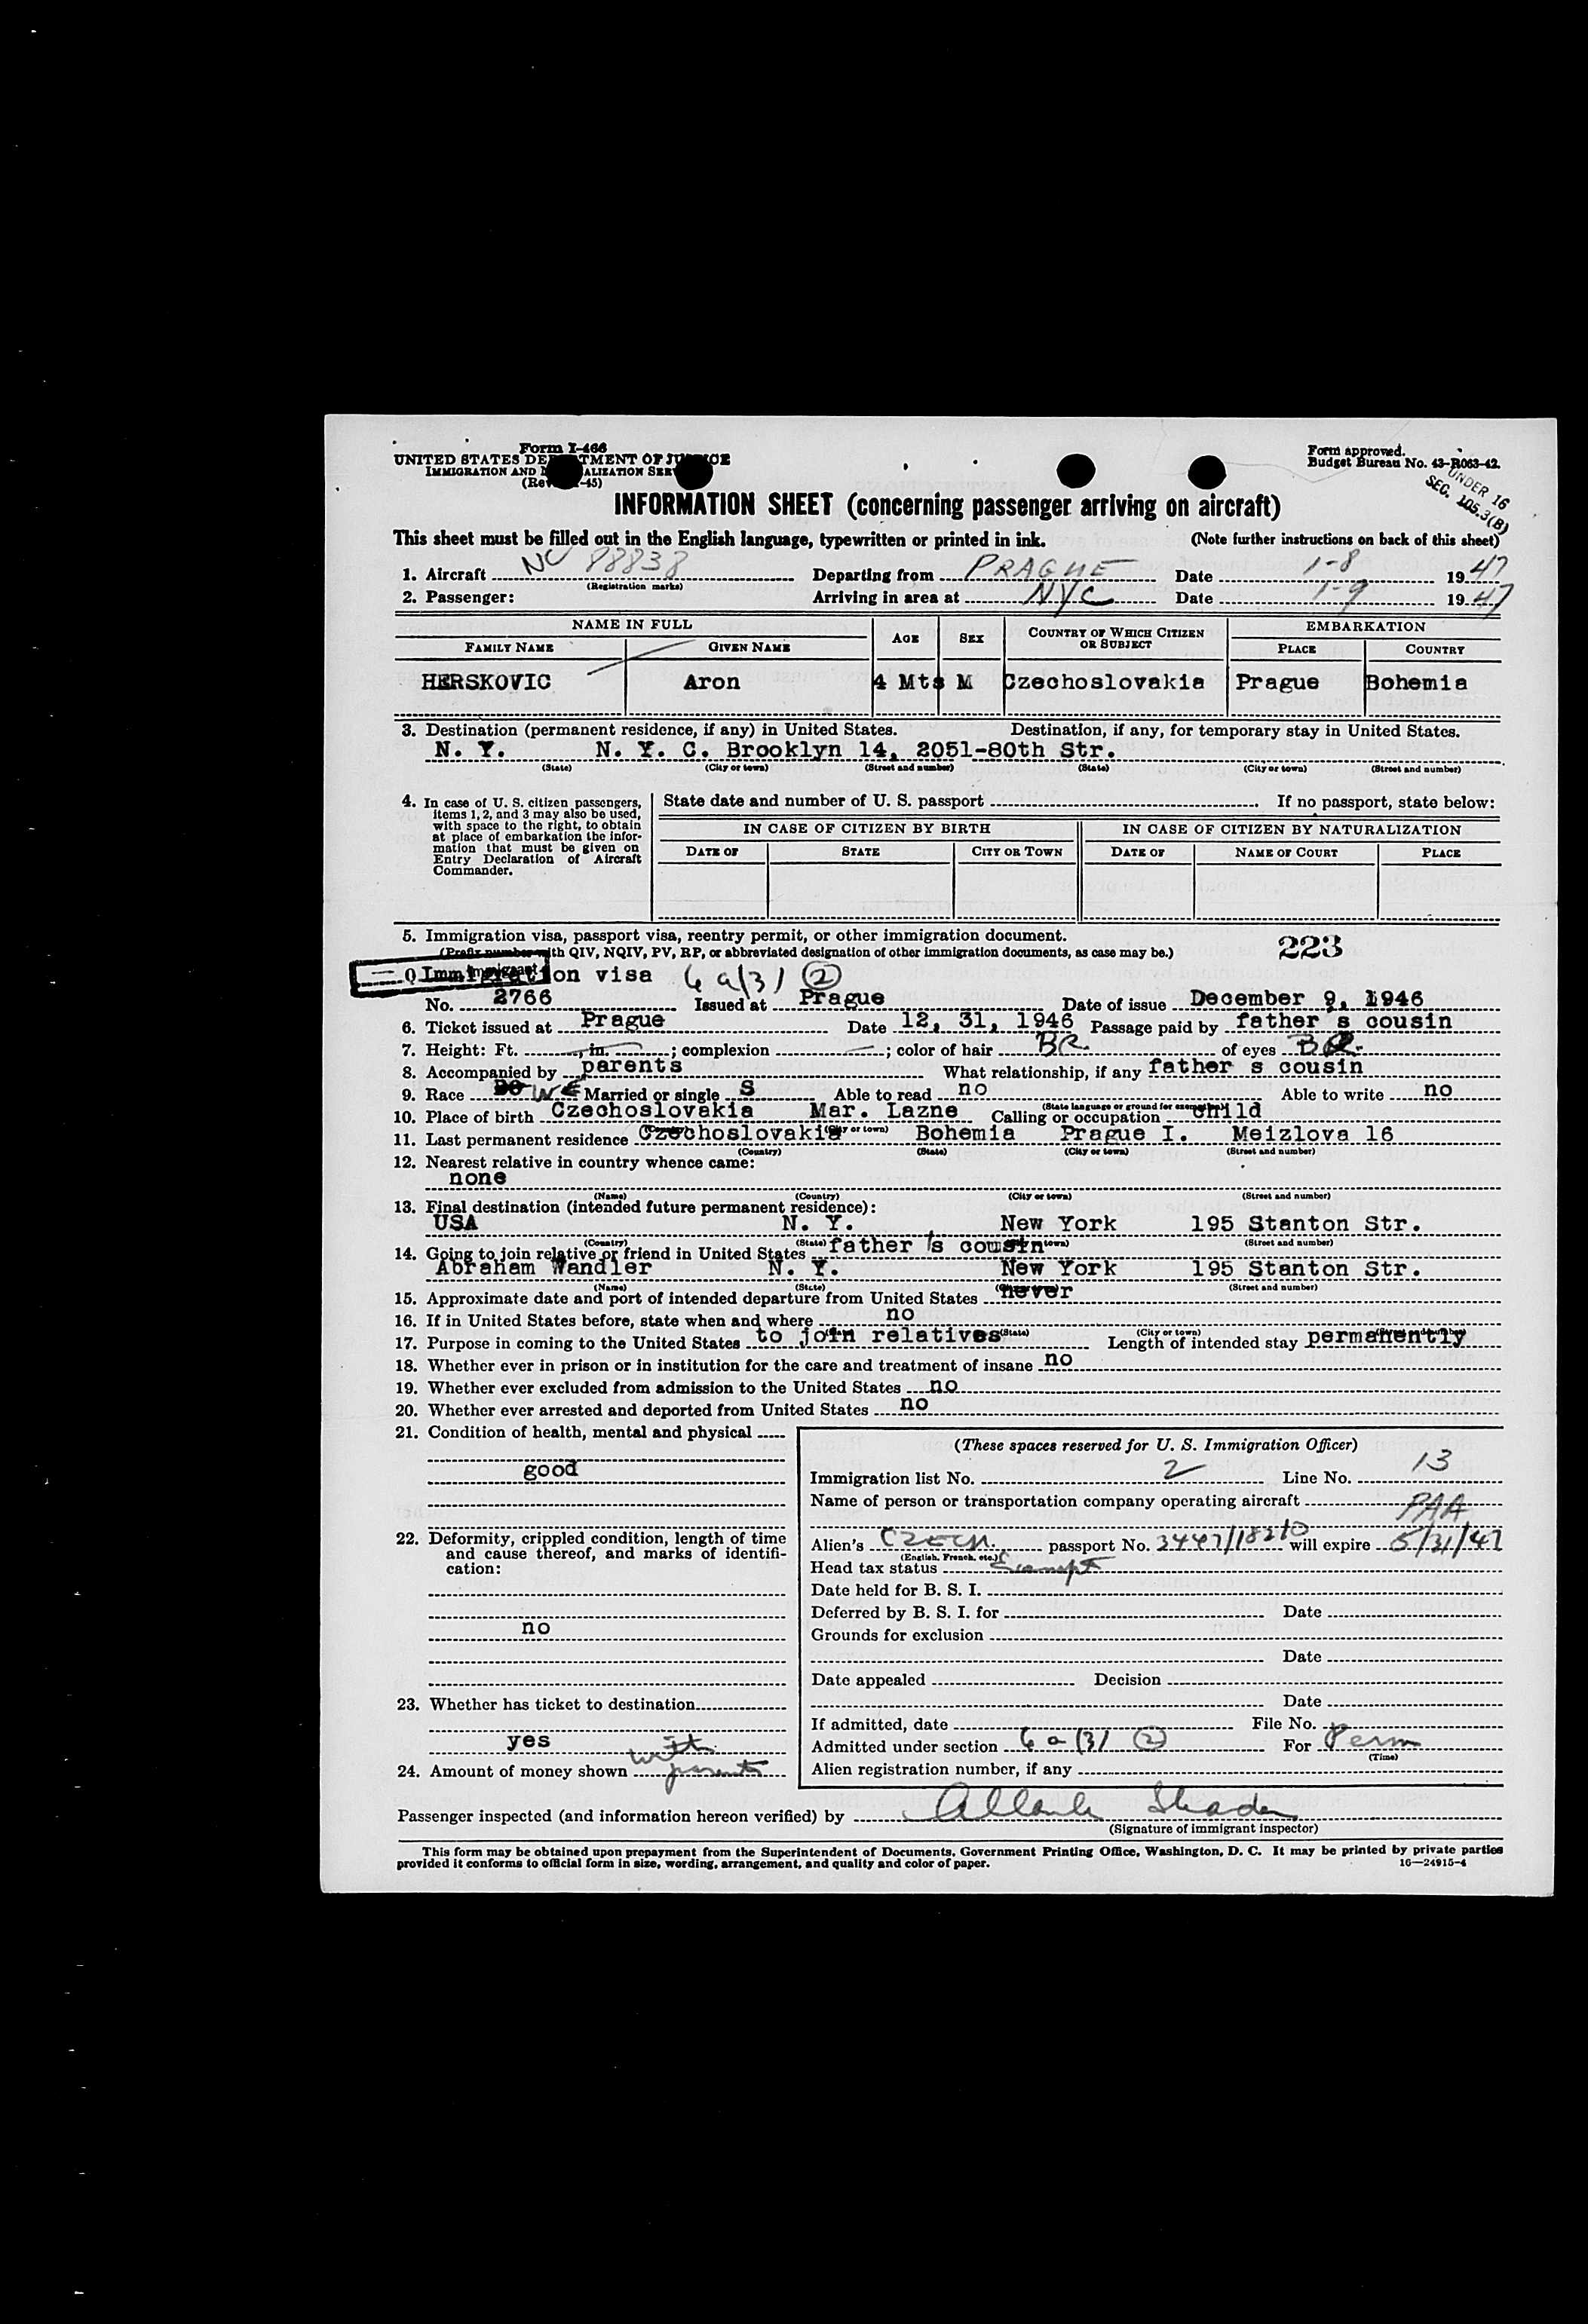 Form I-466
UNITED STATES DE TMENT OF JU CE
IMMIGRATION AND N ALIZATION SER
(Rev. -45)
Form approved.
Budget Bureau No. 43-R063-42.
UNDER 16
SEC. 105.3(B)
INFORMATION SHEET (concerning passenger arriving on aircraft)
This sheet must be filled out in the English language, typewritten or printed in ink. (Note further instructions on back of this sheet)
1. Aircraft NC 88838 Departing from PRAGUE Date 1-8 1947
(Registration marks)
2. Passenger: Arriving in area at NYC Date 1-9 1947
NAME IN FULL AGE SEX COUNTRY OF WHICH CITIZEN OR SUBJECT EMBARKATION
FAMILY NAME GIVEN NAME PLACE COUNTRY
HERSKOVIC Aron 4 Mts M Czechoslovakia Prague Bohemia
3. Destination (permanent residence, if any) in United States. Destination, if any, for temporary stay in United States.
N. Y. N. Y. C. Brooklyn 14, 2051-80th Str.
(State) (City or town) (Street and number) (State) (City or town) (Street and number)
4. In case of U. S. citizen passengers,
items 1, 2, and 3 may also be used,
with space to the right, to obtain
at place of embarkation the infor-
mation that must be given on
Entry Declaration of Aircraft
Commander.
State date and number of U. S. passport If no passport, state below:
IN CASE OF CITIZEN BY BIRTH IN CASE OF CITIZEN BY NATURALIZATION
DATE OF STATE CITY OR TOWN DATE OF NAME OF COURT PLACE
5. Immigration visa, passport visa, reentry permit, or other immigration document.
(Prefix number with QIV, NQIV, PV, RP, or abbreviated designation of other immigration documents, as case may be.) 223
Q Immigration visa 4 a(3) (2)
Immigrant
No. 2766 Issued at Prague Date of issue December 9, 1946
6. Ticket issued at Prague Date 12, 31, 1946 Passage paid by father s cousin
7. Height: Ft. , in. ; complexion ; color of hair BR of eyes BR.
8. Accompanied by parents What relationship, if any father s cousin
9. Race WE Married or single S Able to read no Able to write no
(State language or ground for exemption)
10. Place of birth Czechoslovakia Mar. Lazne Calling or occupation child
(Country) (City or town)
11. Last permanent residence Czechoslovakia Bohemia Prague I. Meizlova 16
(Country) (State) (City or town) (Street and number)
12. Nearest relative in country whence came:
none
(Name) (Country) (City or town) (Street and number)
13. Final destination (intended future permanent residence):
USA N. Y. New York 195 Stanton Str.
(Country) (State) (City or town) (Street and number)
14. Going to join relative or friend in United States father 's cousin
Abraham Wandler N. Y. New York 195 Stanton Str.
(Name) (State) (City or town) (Street and number)
15. Approximate date and port of intended departure from United States never
16. If in United States before, state when and where no
(State) (City or town) (Street and number)
17. Purpose in coming to the United States to join relatives Length of intended stay permanently
18. Whether ever in prison or in institution for the care and treatment of insane no
19. Whether ever excluded from admission to the United States no
20. Whether ever arrested and deported from United States no
21. Condition of health, mental and physical
good
22. Deformity, crippled condition, length of time
and cause thereof, and marks of identifi-
cation:
no
23. Whether has ticket to destination
yes
24. Amount of money shown with parents
(These spaces reserved for U. S. Immigration Officer)
Immigration list No. 2 Line No. 13
Name of person or transportation company operating aircraft PAA
Alien's CZECH. passport No. 3447/18210 will expire 5/31/47
(English, French, etc.)
Head tax status Exempt
Date held for B. S. I.
Deferred by B. S. I. for Date
Grounds for exclusion
Date
Date appealed Decision
Date
If admitted, date File No.
Admitted under section 4 a (3) (2) For Perm
(Time)
Alien registration number, if any
Passenger inspected (and information hereon verified) by
(Signature of immigrant inspector)
This form may be obtained upon prepayment from the Superintendent of Documents, Government Printing Office, Washington, D. C. It may be printed by private parties
provided it conforms to official form in size, wording, arrangement, and quality and color of paper. 16—24915-4